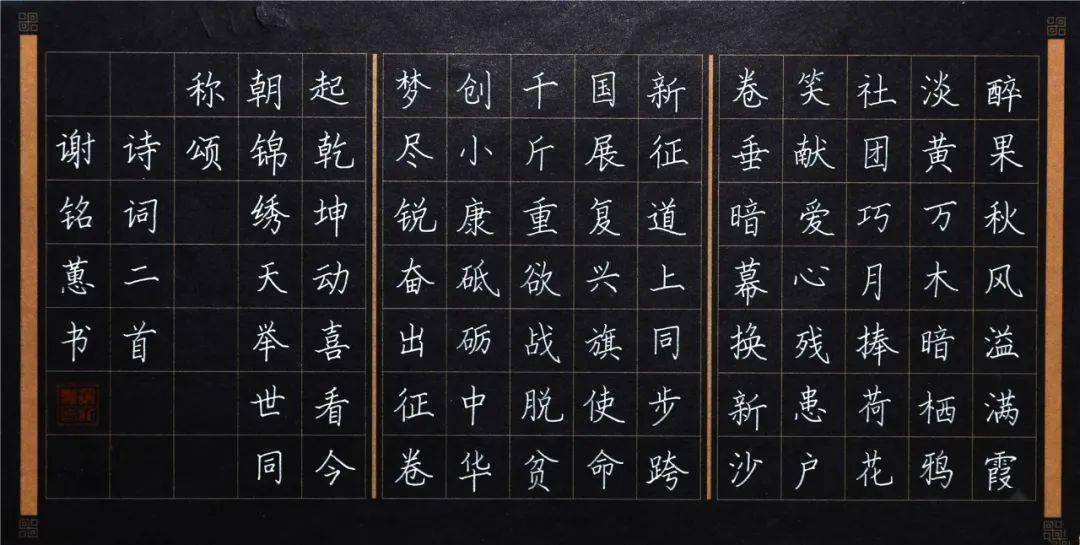 醉果秋风溢满霞
淡黄万木暗栖鸦
社团巧月捧荷花
笑献爱心残患户
卷垂暗幕换新沙
新征道上同步跨
国展复兴旗使命
千斤重欲战脱贫
创小康砥砺中华
梦尽锐奋出征卷
起乾坤动喜看今
朝锦绣天举世同
称颂
诗词二首
谢铭蕙书